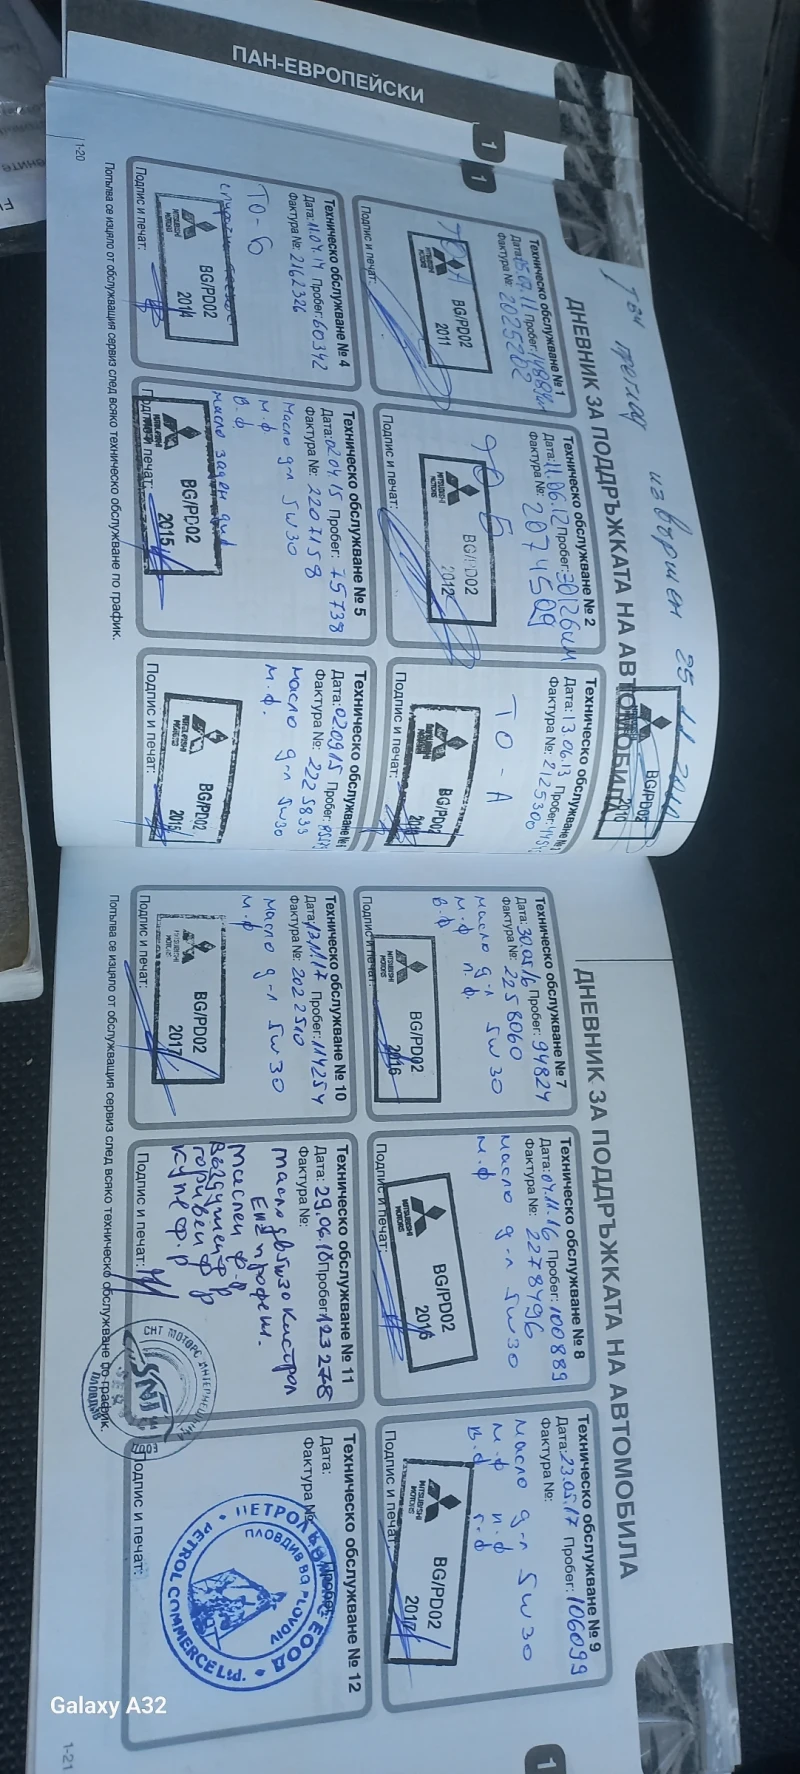 ПАН-ЕВРОПЕЙСКИ
1
1
1ви преглед извършен 25 11 2010
ДНЕВНИК ЗА ПОДДРЪЖКАТА НА АВТОМОБИЛА
MITSUBISHI MOTORS
BG/PD02
2010
Техническо обслужване № 1
Дата: 05.07.11 Пробег:
Фактура №: 2025202
ТО А
MITSUBISHI MOTORS
BG/PD02
2011
Подпис и печат:
Техническо обслужване № 2
Дата: 11.06.12 Пробег: 30126км
Фактура №: 2074509
ТО Б
MITSUBISHI MOTORS
BG/PD02
2012
Подпис и печат:
Техническо обслужване № 3
Дата: 13.06.13 Пробег:
Фактура №: 2125300
ТО - А
BG/PD02
Подпис и печат:
Техническо обслужване № 4
Дата: 11.04.14 Пробег: 60342
Фактура №: 2162326
ТО - Б
MITSUBISHI MOTORS
BG/PD02
2014
Подпис и печат:
Техническо обслужване № 5
Дата: 02.04.15 Пробег: 75738
Фактура №: 2207158
Масло д-л 5w30
м.ф
в.ф
масло заден диф
BG/PD02
2015
Подпис и печат:
Техническо обслужване № 6
Дата: 02.09.15 Пробег:
Фактура №: 2225833
масло д-л 5w30
м.ф.
MITSUBISHI MOTORS
BG/PD02
2015
Подпис и печат:
Попълва се изцяло от обслужващия сервиз след всяко техническо обслужване по график.
1-20
ДНЕВНИК ЗА ПОДДРЪЖКАТА НА АВТОМОБИЛА
Техническо обслужване № 7
Дата: 30.05.16 Пробег: 94824
Фактура №: 2258060
масло д-л 5w30
м.ф п.ф.
в.ф
MITSUBISHI MOTORS
BG/PD02
2016
Подпис и печат:
Техническо обслужване № 8
Дата: 04.11.16 Пробег: 100889
Фактура №: 2278496
масло д-л 5w30
м.ф
MITSUBISHI MOTORS
BG/PD02
2016
Подпис и печат:
Техническо обслужване № 9
Дата: 23.05.17 Пробег: 106099
Фактура №:
масло д-л 5w30
м.ф п.ф
в.ф г.ф
MITSUBISHI MOTORS
BG/PD02
2017
Подпис и печат:
Техническо обслужване № 10
Дата: 13.11.17 Пробег: 114254
Фактура №: 2022510
масло д-л 5w30
м.ф
BG/PD02
2017
Подпис и печат:
Техническо обслужване № 11
Дата: 29.06.18 Пробег: 123278
Фактура №:
масло двг изо кастрол
маслен ф-р
Въздушен ф-р
горивен ф-р
купе ф-р
Подпис и печат:
СНТ МОТОРС ИНТЕРНЕШНЪЛ ЕООД
SNT
ПЛОВДИВ
Техническо обслужване № 12
Дата: Пробег:
Фактура №:
ПЛОВДИВ BG PLOVDIV
PETROL COMMERCE Ltd.
ЕООД
Подпис и печат:
Попълва се изцяло от обслужващия сервиз след всяко техническо обслужване по график.
1-21
1
Galaxy A32